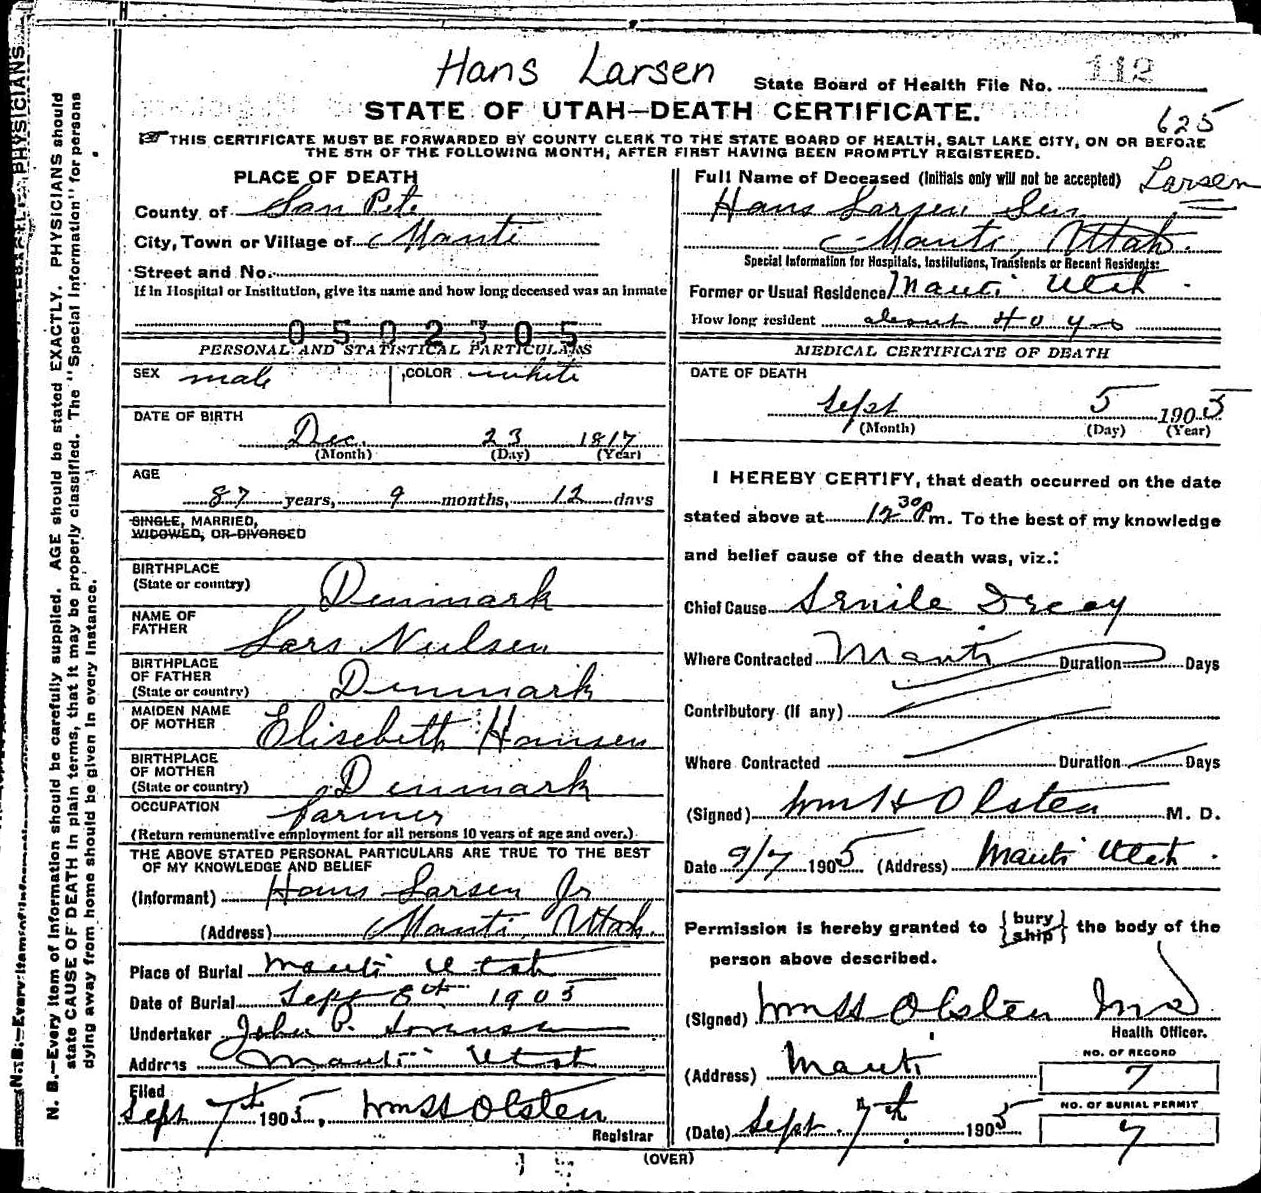 Hans Larsen
State Board of Health File No. 112
STATE OF UTAH—DEATH CERTIFICATE.
625
THIS CERTIFICATE MUST BE FORWARDED BY COUNTY CLERK TO THE STATE BOARD OF HEALTH, SALT LAKE CITY, ON OR BEFORE
THE 5TH OF THE FOLLOWING MONTH, AFTER FIRST HAVING BEEN PROMPTLY REGISTERED.
PLACE OF DEATH
County of San Pete
City, Town or Village of Manti
Street and No.
If in Hospital or Institution, give its name and how long deceased was an inmate
0502305
PERSONAL AND STATISTICAL PARTICULARS
SEX male COLOR white
DATE OF BIRTH
Dec. 23 1817
(Month) (Day) (Year)
AGE
87 years, 9 months, 12 days
SINGLE, MARRIED,
WIDOWED, OR DIVORCED
BIRTHPLACE
(State or country) Denmark
NAME OF
FATHER Lars Nielsen
BIRTHPLACE
OF FATHER
(State or country) Denmark
MAIDEN NAME
OF MOTHER Elisebeth Hansen
BIRTHPLACE
OF MOTHER
(State or country) Denmark
OCCUPATION farmer
(Return remunerative employment for all persons 10 years of age and over.)
THE ABOVE STATED PERSONAL PARTICULARS ARE TRUE TO THE BEST
OF MY KNOWLEDGE AND BELIEF
(Informant) Hans Larsen Jr
(Address) Manti, Utah.
Place of Burial Manti Utah
Date of Burial Sept 8th 1905
Undertaker John P. Sorensen
Address Manti Utah
Filed
Sept 7th 1905, Wm H Olsten
Registrar
Full Name of Deceased (Initials only will not be accepted) Larsen
Hans Larsen Sen
Manti, Utah.
Special Information for Hospitals, Institutions, Transients or Recent Residents:
Former or Usual Residence Manti Utah
How long resident about 40 yrs
MEDICAL CERTIFICATE OF DEATH
DATE OF DEATH
Sept 5 1905
(Month) (Day) (Year)
I HEREBY CERTIFY, that death occurred on the date
stated above at 12 30 P m. To the best of my knowledge
and belief cause of the death was, viz.:
Chief Cause Senile Decay
Where Contracted Manti Duration Days
Contributory (If any)
Where Contracted Duration Days
(Signed) Wm H Olsten M. D.
Date 9/7 1905 (Address) Manti Utah.
Permission is hereby granted to {bury ship} the body of the
person above described.
(Signed) Wm H Olsten MD
Health Officer.
(Address) Manti
NO. OF RECORD
7
(Date) Sept. 7th 1905
NO. OF BURIAL PERMIT
7
(OVER)
N. B.—Every item of information should be carefully supplied. AGE should be stated EXACTLY. PHYSICIANS should
state CAUSE OF DEATH in plain terms, that it may be properly classified. The "Special Information" for persons
dying away from home should be given in every instance.